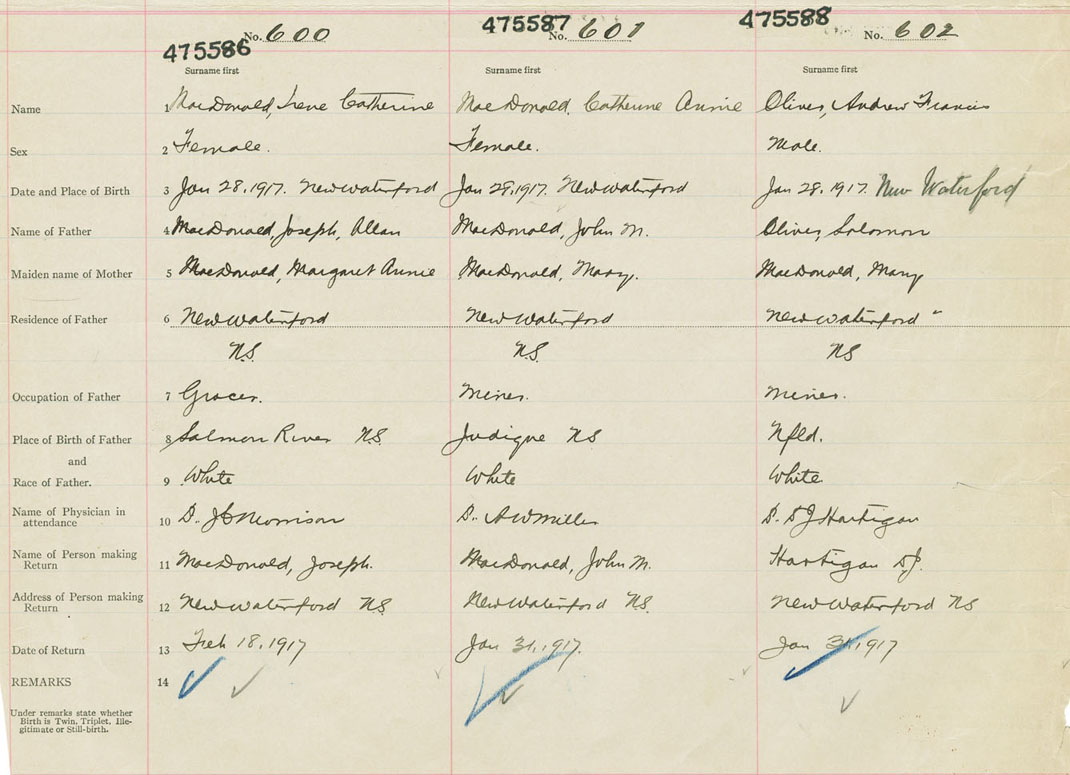 475586 No. 600 475587 No. 601 475588 No. 602
Surname first Surname first Surname first
Name 1 MacDonald, Irene Catherine MacDonald, Catherine Annie Oliver, Andrew Francis
Sex 2 Female. Female. Male.
Date and Place of Birth 3 Jan 28, 1917. New Waterford Jan 29, 1917. New Waterford Jan 28, 1917. New Waterford
Name of Father 4 MacDonald, Joseph, Allan MacDonald, John M. Oliver, Solomon
Maiden name of Mother 5 MacDonald, Margaret Annie MacDonald, Mary. MacDonald, Mary
Residence of Father 6 New Waterford New Waterford New Waterford
N.S. N.S. NS
Occupation of Father 7 Grocer. Miner. Miner.
Place of Birth of Father 8 Salmon River N.S. Judique NS Nfld.
and
Race of Father. 9 White White White
Name of Physician in 10 Morrison D. A W Miller D. D J Hartigan
attendance
Name of Person making 11 MacDonald, Joseph. MacDonald, John M. Hartigan D.J.
Return
Address of Person making 12 New Waterford N.S. New Waterford N.S. New Waterford NS
Return
Date of Return 13 Feb 18, 1917 Jan 31, 1917. Jan 31, 1917
REMARKS 14
Under remarks state whether
Birth is Twin, Triplet, Ille-
gitimate or Still-birth.